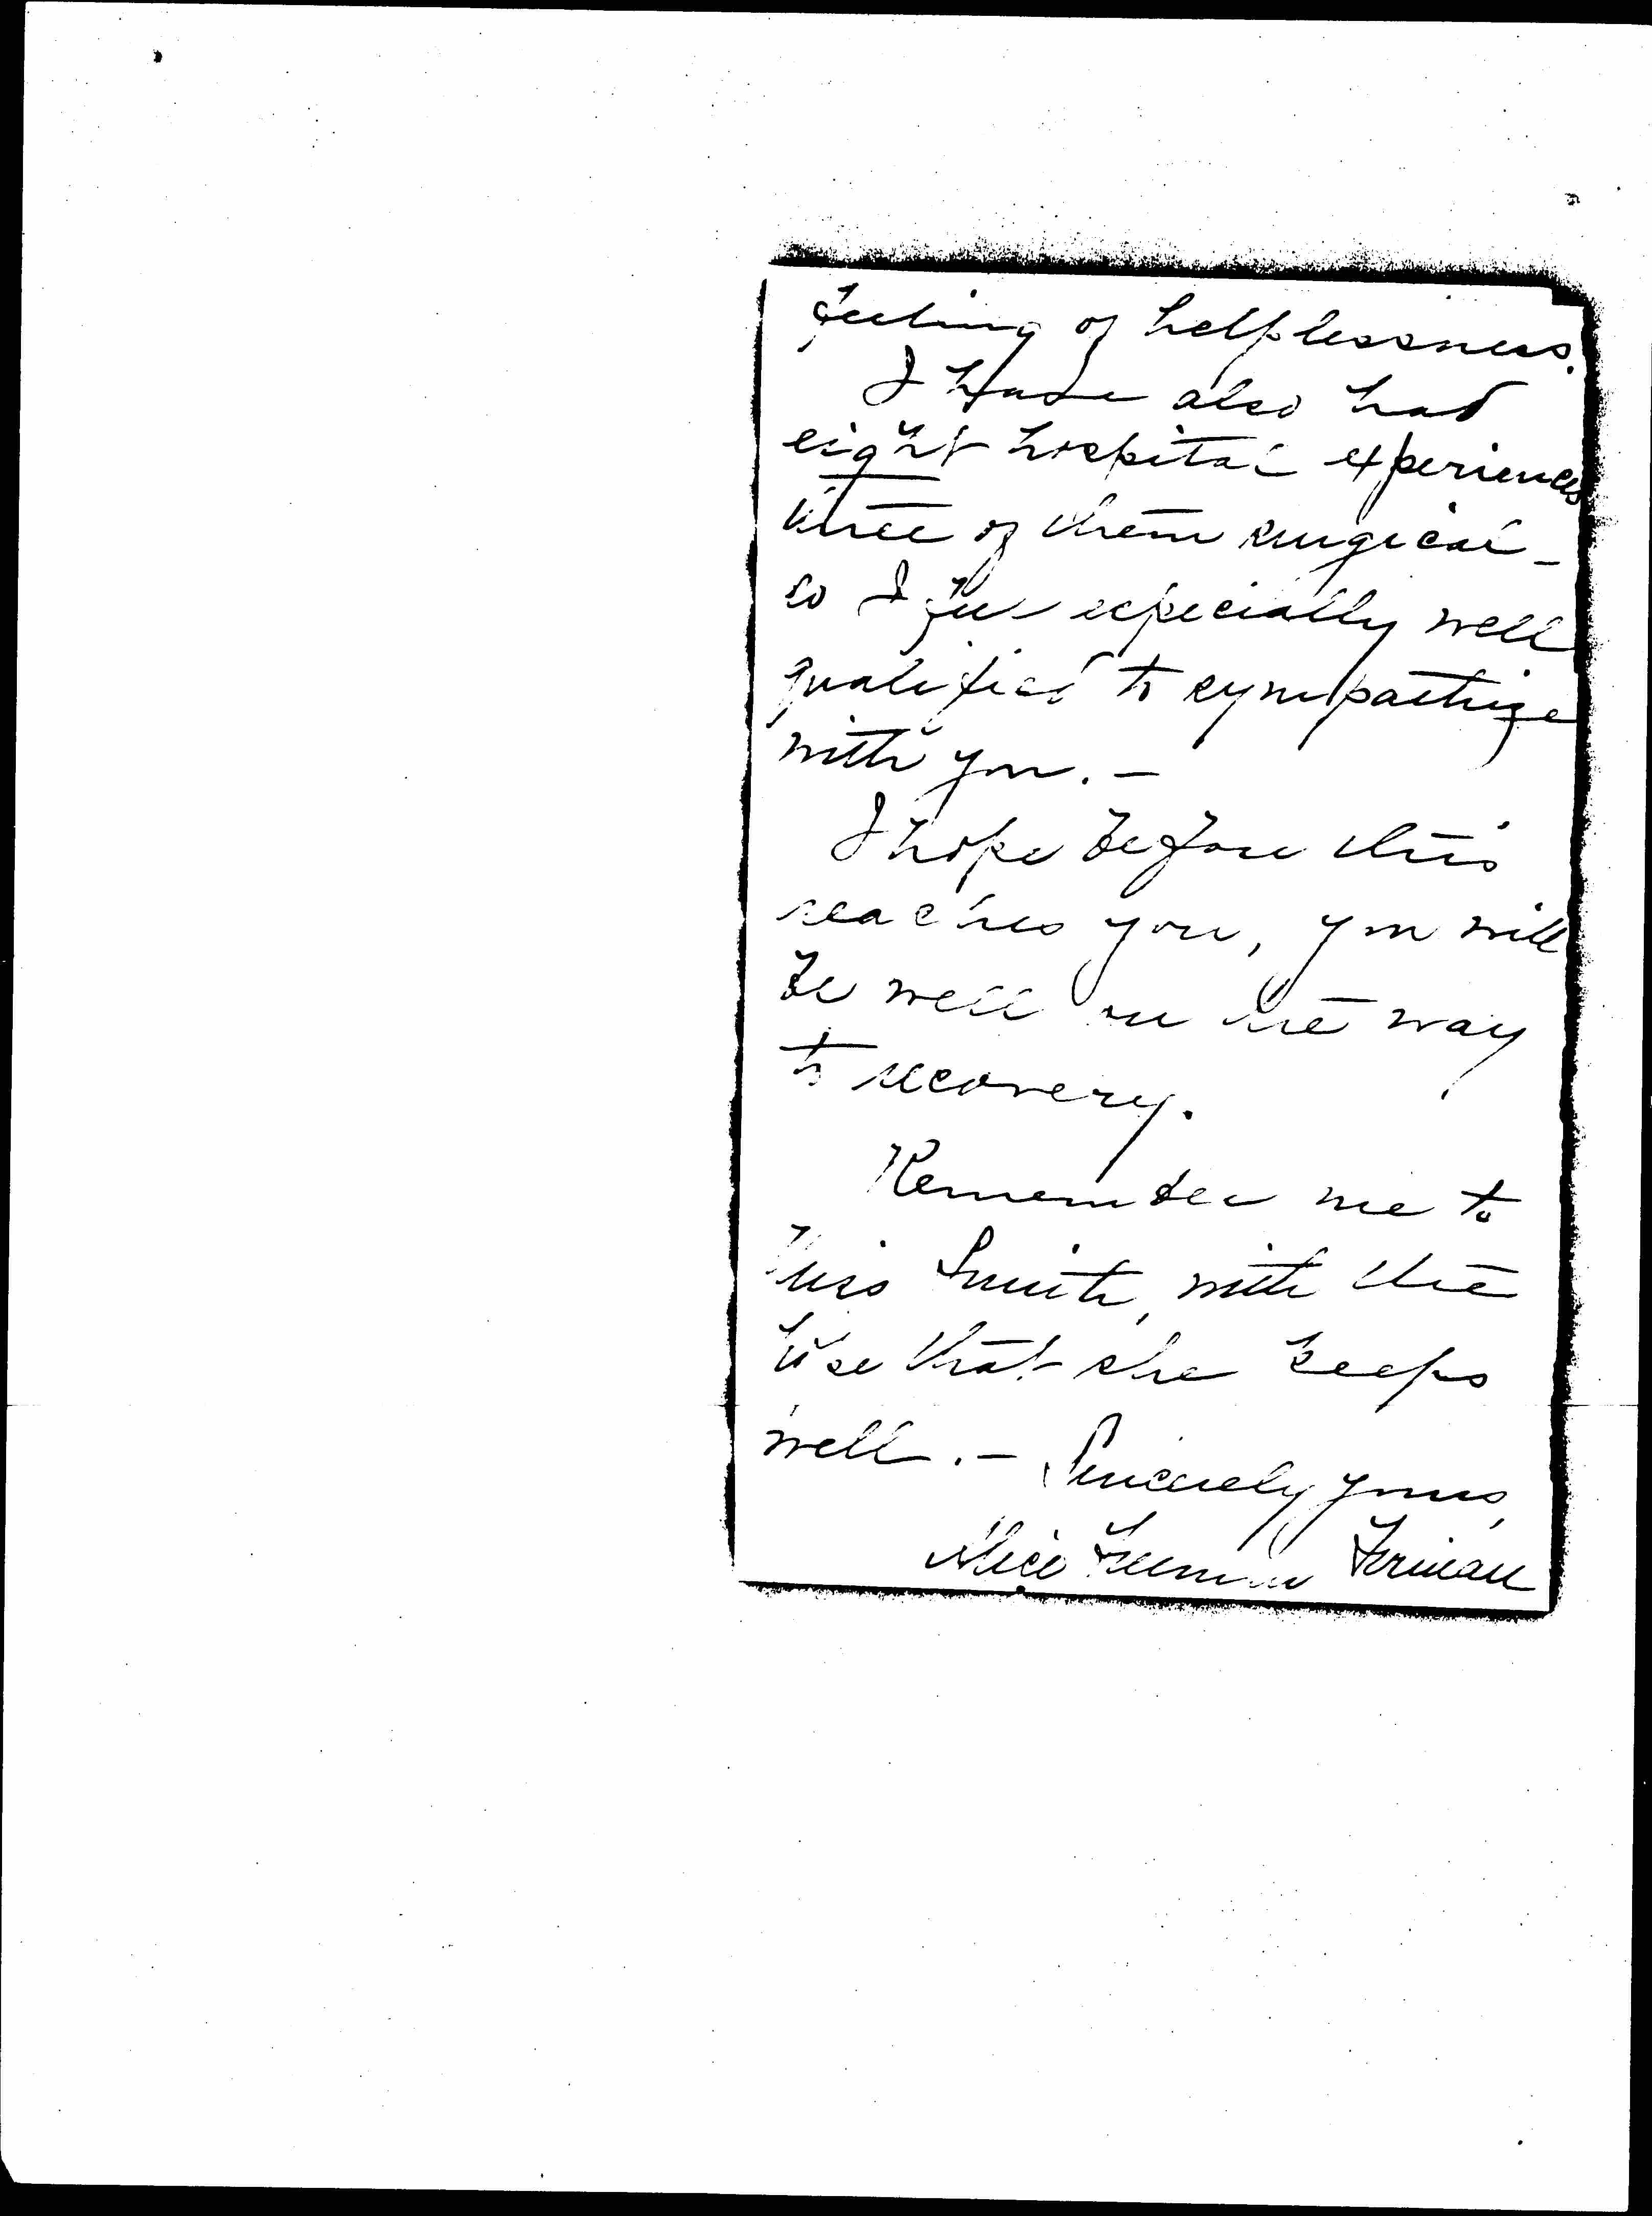 feeling of helplessness.
I have also had
eight hospital experiences
three of them surgical –
so I feel especially well
qualified to sympathize
with you. –
I hope before this
reaches you, you will
be well on the way
to recovery.
Remember me to
Miss Smith, with the
that she keeps
well. – Sincerely yours,
Alice